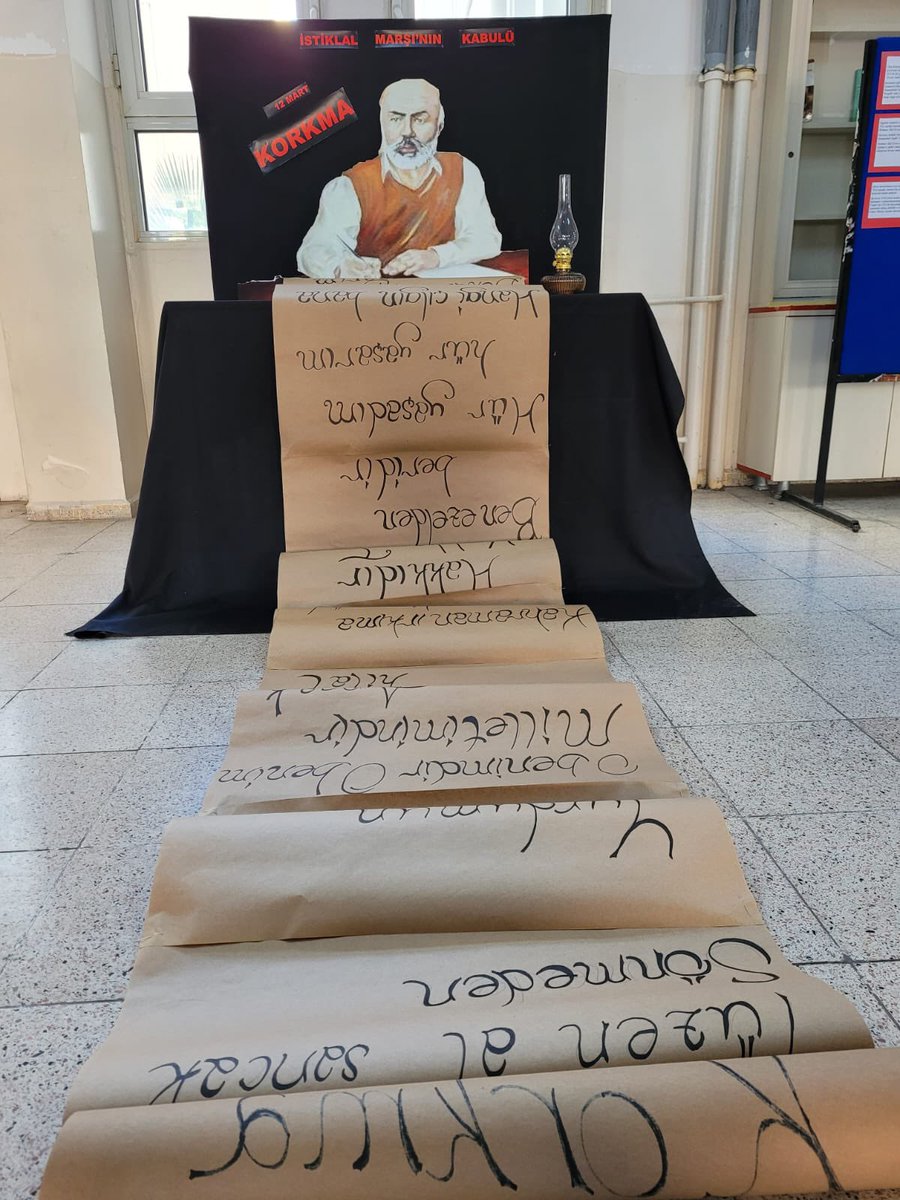 İSTİKLAL MARŞI'NIN KABULÜ
12 MART
KORKMA
Korkma
Yüzen al sancak
Sönmeden
Yurdumun
O benimdir O benim
Milletimindir
hilal
Kahraman ırkıma
Hakkıdır
Ben ezelden
beridir
Hür yaşadım
hür yaşarım
Hangi çılgın bana